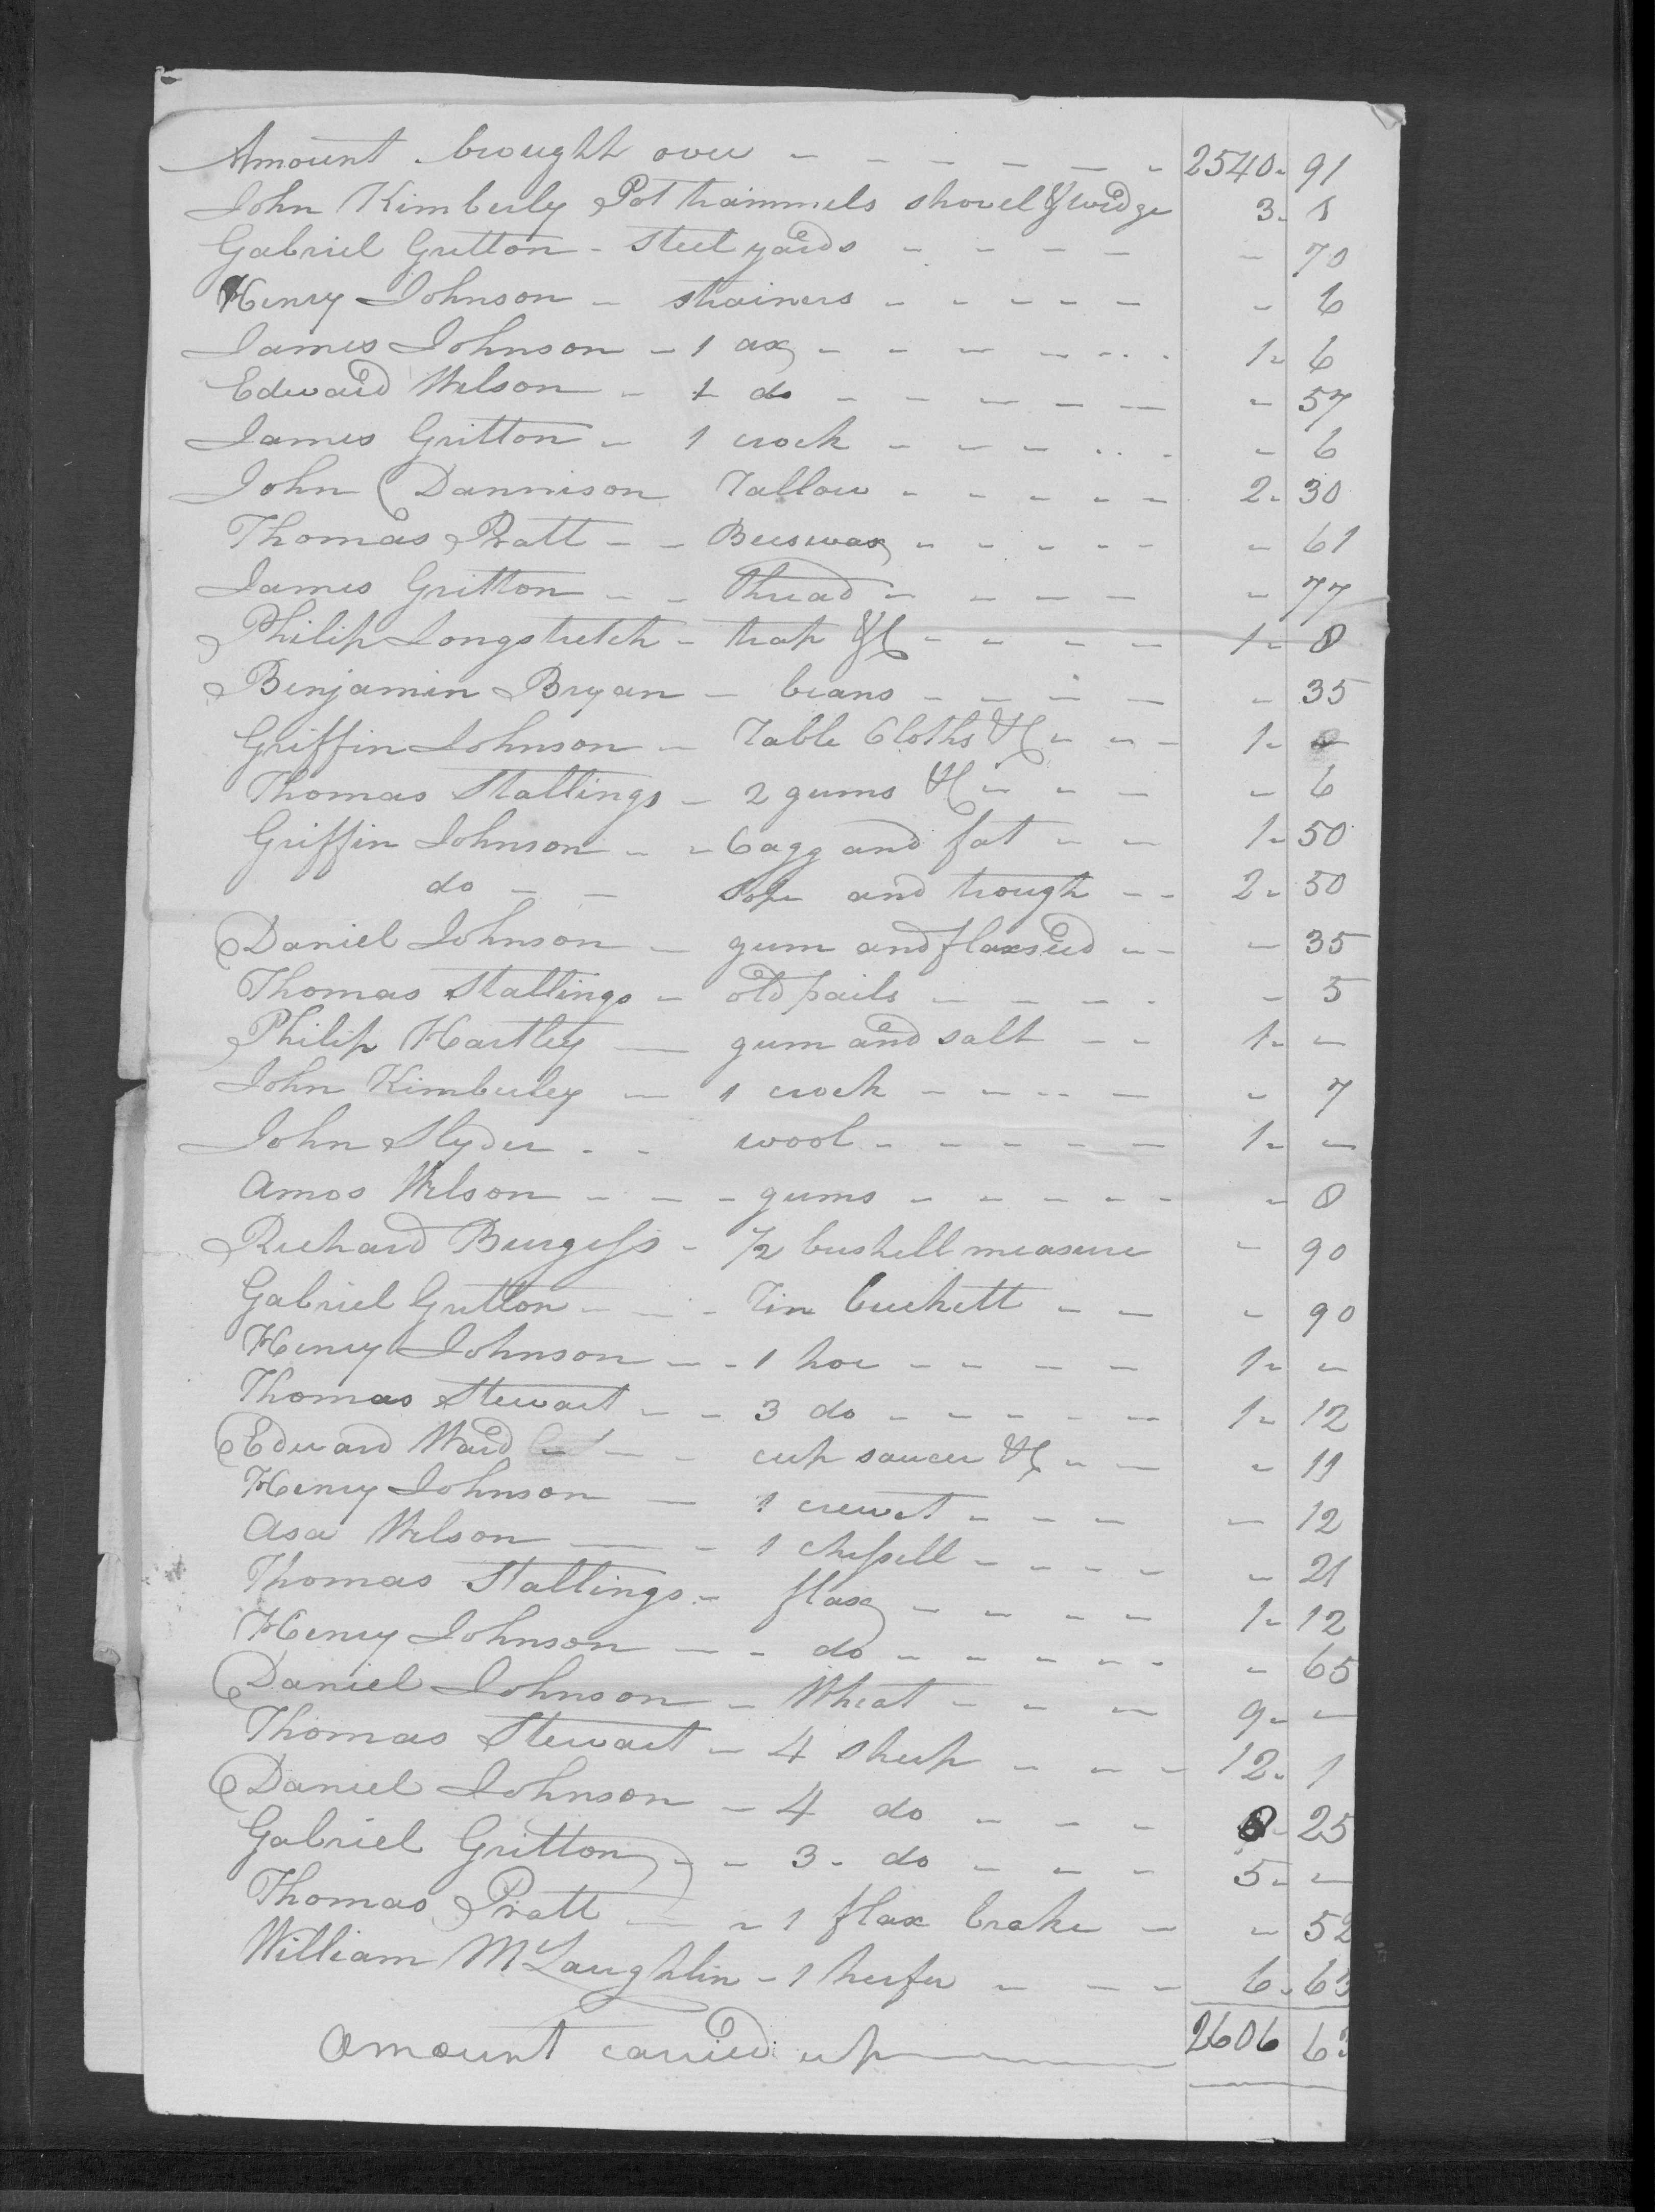 Amount brought over - - - - - - - 2540 - 91
John Kimberly Pot trammels shovel & wedge 3 - 1
Gabriel Gritton - Steelyards - - - - - 70
Henry Johnson - strainers - - - - - - 6
James Johnson - 1 ax - - - - - - 1 - 6
Edward Wilson - 1 do - - - - - - 57
James Gritton - 1 crock - - - - - - 6
John Dannison Tallow - - - - - 2 - 30
Thomas Pratt - - Beeswax - - - - - - 61
James Gritton - - thread - - - - - 77
Philip Longstretch - trap &c - - - - 1 - 8
Benjamin Bryan - beans - - - - - 35
Griffin Johnson - Table Cloths &c - - - 1 - -
Thomas Stallings - 2 gums &c - - - - 6
Griffin Johnson - - Cagg and fat - - 1 - 50
do - - Sope and trough - - 2 - 50
Daniel Johnson - gum and flaxseed - - - 35
Thomas Stallings - old pails - - - - - 5
Philip Hartley - gum and salt - - 1 - -
John Kimberley - 1 crock - - - - - - 7
John Slyder - - wool - - - - - 1 - -
Amos Wilson - - - gums - - - - - - 8
Richard Burgess - 1/2 bushell measure - 90
Gabriel Gritton - - - Tin buckett - - - 90
Henry Johnson - - 1 hoe - - - - 1 - -
Thomas Stewart - - 3 do - - - - - 1 - 12
Edward Ward - - - cup saucer &c - - - 11
Henry Johnson - 1 crewet - - - - 12
Asa Wilson - - 1 chissell - - - - - 21
Thomas Stallings - flax - - - - 1 - 12
Henry Johnson - - do - - - - - - 65
Daniel Johnson - Wheat - - - 9 - -
Thomas Stewart - 4 sheep - - - 12 - 1
Daniel Johnson - 4 do - - - 8 - 25
Gabriel Gritton - - 3 - do - - - 5 - -
Thomas Pratt - - 1 flax brake - - 52
William McLaughlin - 1 heifer - - - 6 - 63
Amount carried up 2606 63